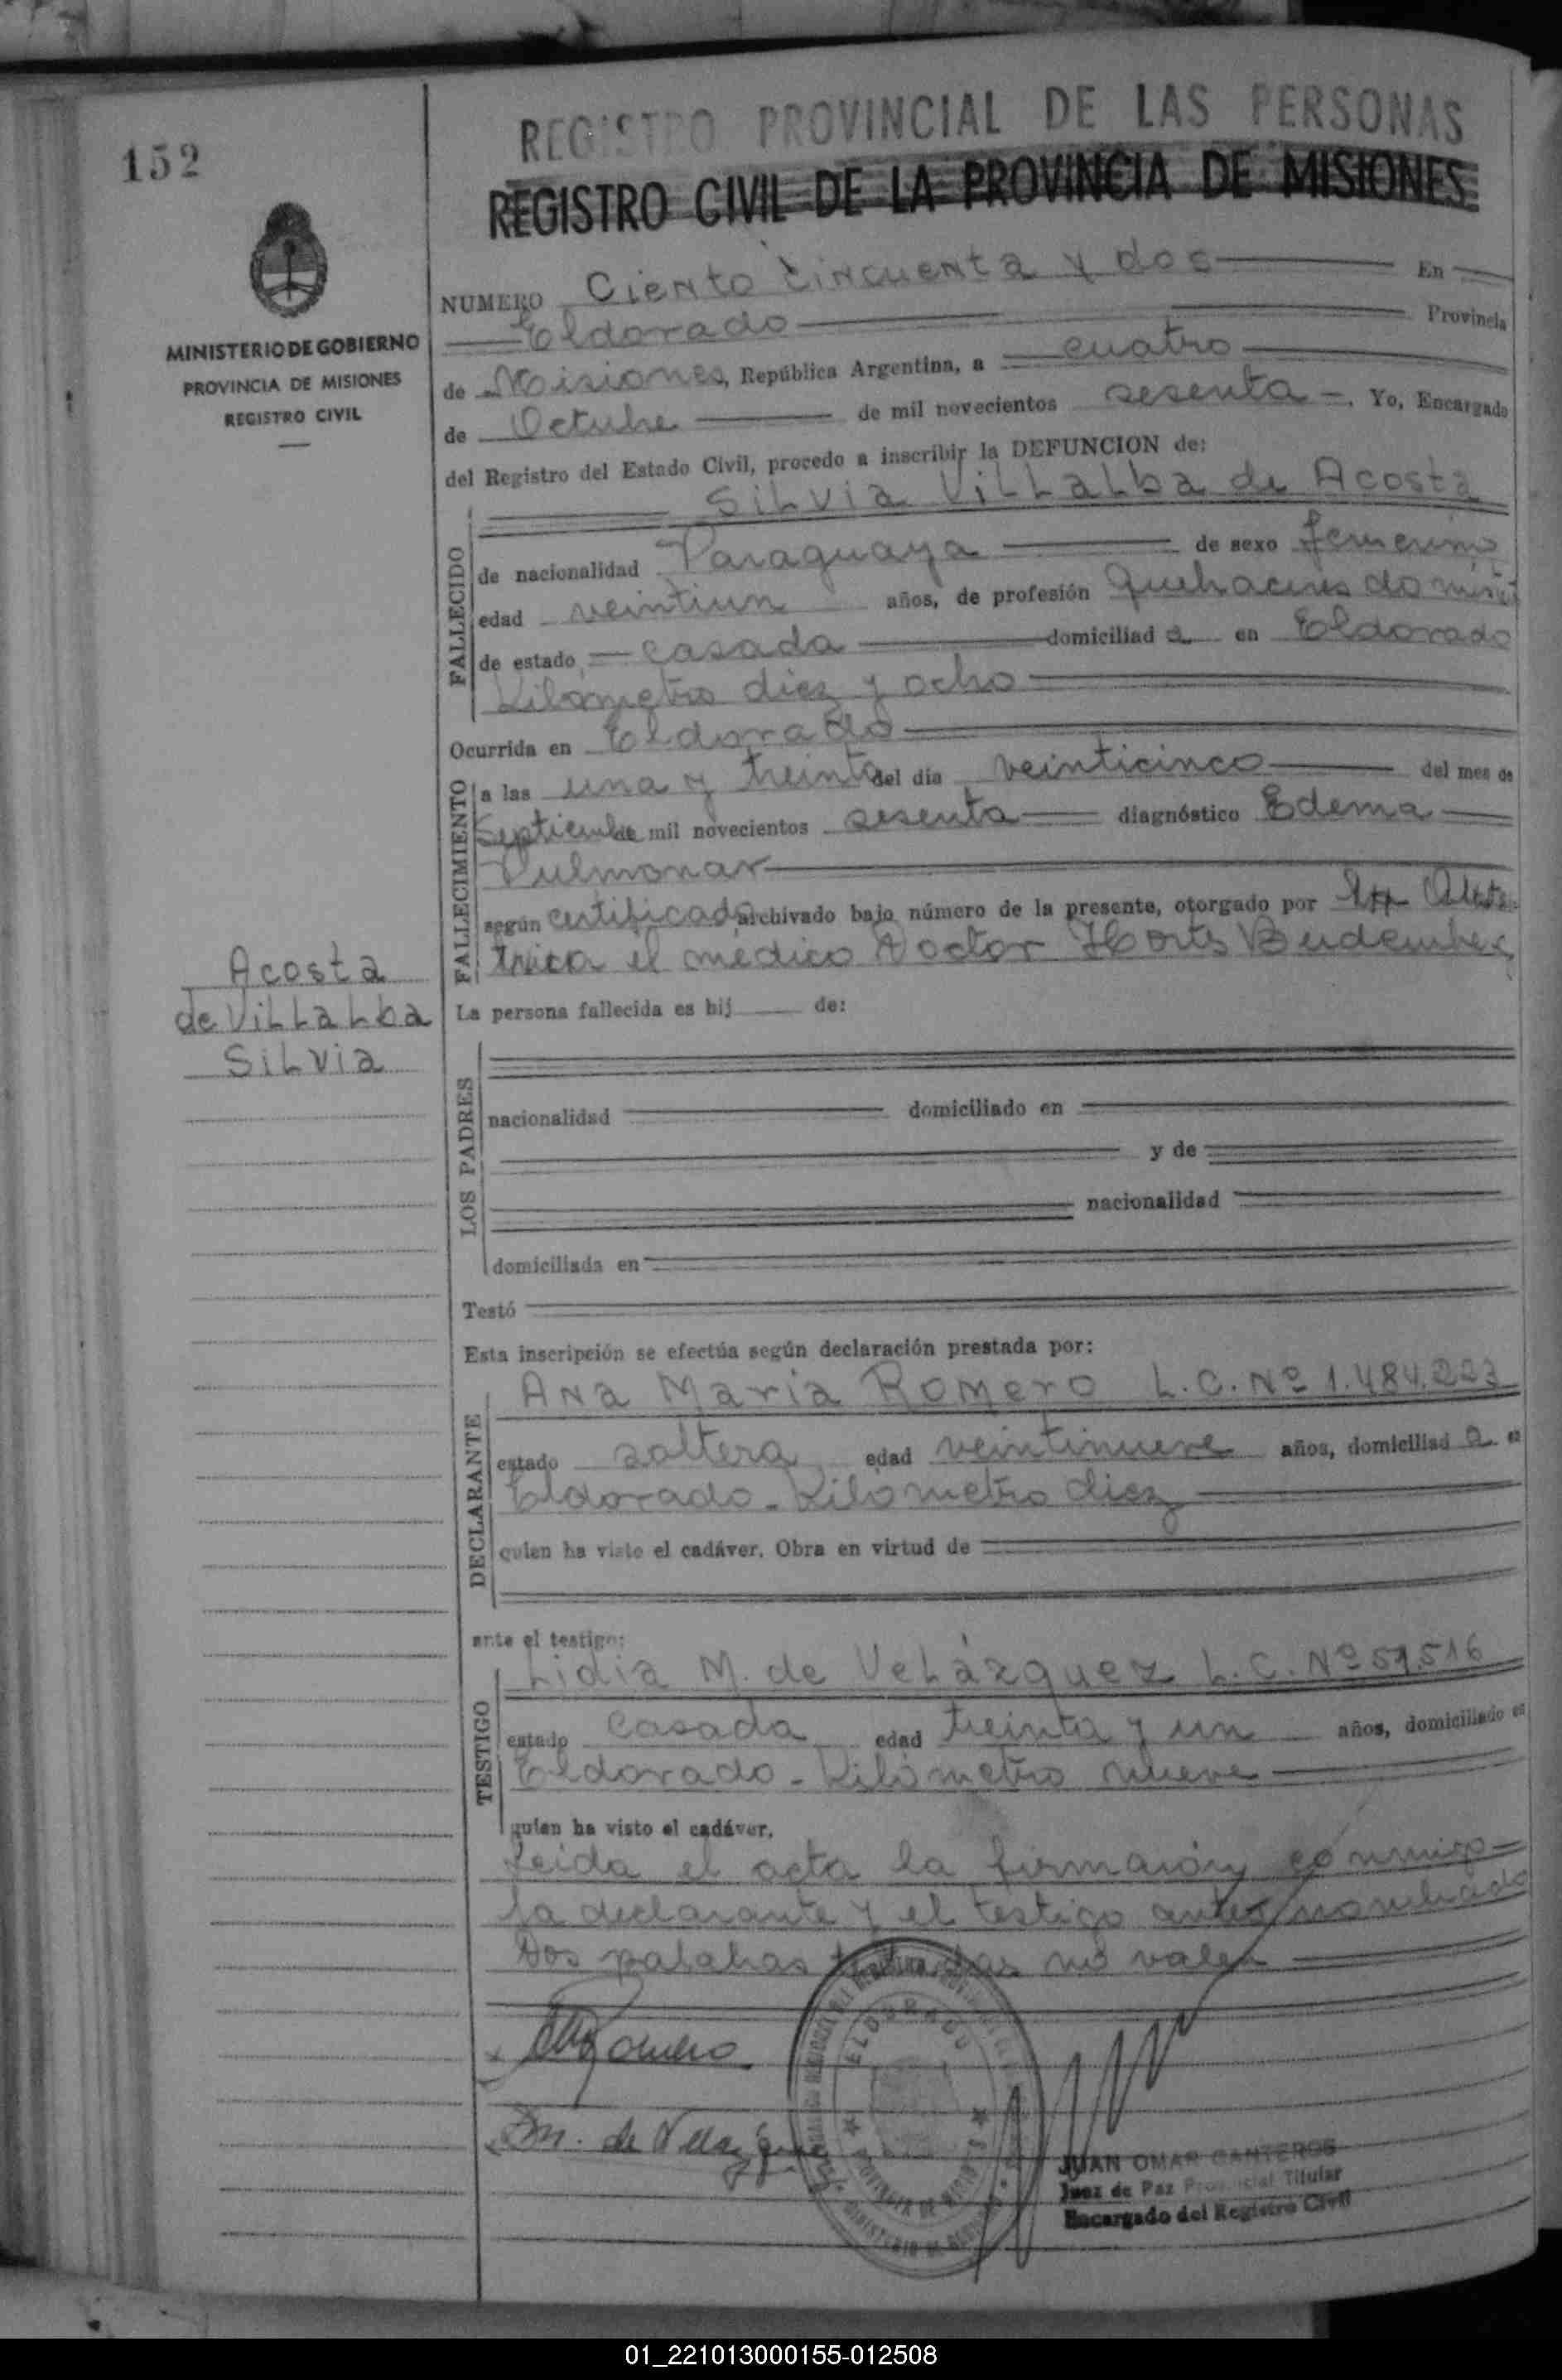 152
REGISTRO PROVINCIAL DE LAS PERSONAS
REGISTRO CIVIL DE LA PROVINCIA DE MISIONES
MINISTERIO DE GOBIERNO
PROVINCIA DE MISIONES
REGISTRO CIVIL
NUMERO Ciento Cincuenta y dos En
Eldorado Provincia
de Misiones, República Argentina, a cuatro
de Octubre de mil novecientos sesenta. Yo, Encargado
del Registro del Estado Civil, procedo a inscribir la DEFUNCION de:
Silvia Villalba de Acosta
FALLECIDO
de nacionalidad Paraguaya de sexo femenino
edad veintiun años, de profesión quehaceres domést
de estado casada domiciliad a en Eldorado
Kilómetro diez y ocho
Ocurrida en Eldorado
FALLECIMIENTO
a las una y treinta del día veinticinco del mes de
Septiembre de mil novecientos sesenta diagnóstico Edema
Pulmonar
según certificado archivado bajo número de la presente, otorgado por
el médico Doctor Horts
Acosta
de Villalba
Silvia
La persona fallecida es hij de:
LOS PADRES
nacionalidad domiciliado en
y de
nacionalidad
domiciliada en
Testó
Esta inscripción se efectúa según declaración prestada por:
DECLARANTE
Ana Maria Romero L.C. Nº 1.484.223
estado soltera edad veintinueve años, domiciliad a en
Eldorado - Kilómetro diez
quien ha visto el cadáver. Obra en virtud de
ante el testigo:
TESTIGO
Lidia M. de Velázquez L.C. Nº
estado Casada edad treinta y un años, domiciliado en
Eldorado - Kilómetro nueve
quien ha visto el cadáver.
Leida el acta la firmaron conmigo
la declarante y el testigo antes nombrado
Dos palabras testadas no valen
Romero
M. de Velazquez
ELDORADO
PROVINCIA DE MISIONES
JUAN OMAR CANTEROS
Juez de Paz Provincial Titular
Encargado del Registro Civil
01_221013000155-012508